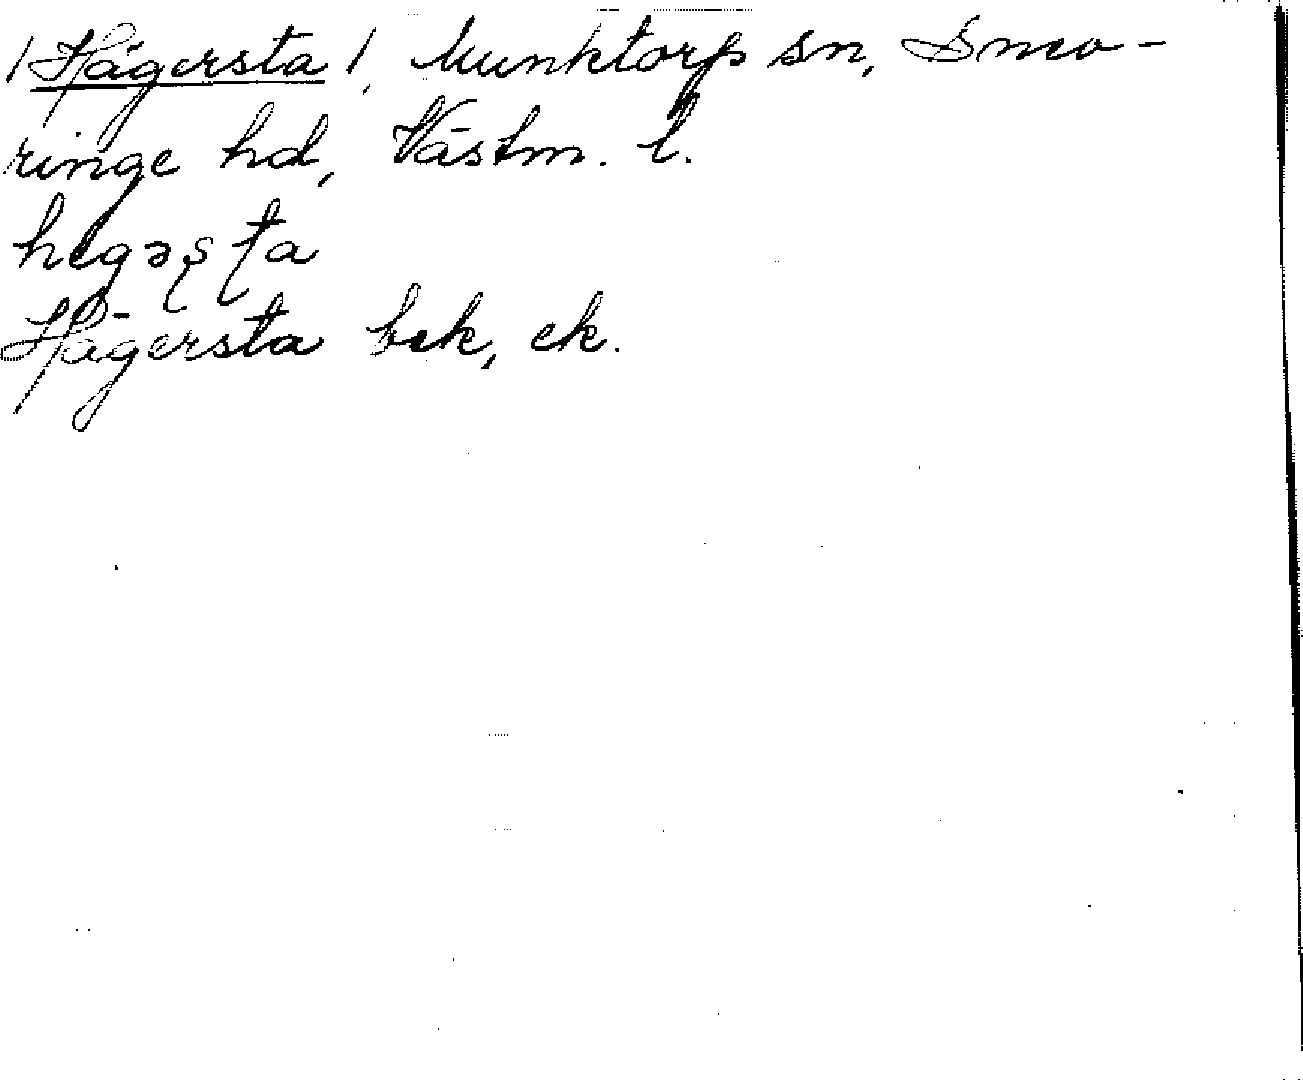 /Hägersta/, Munktorp sn, Snev-
ringe hd, Västm. l.
hegəʂʈa
Hägersta bek, ek.